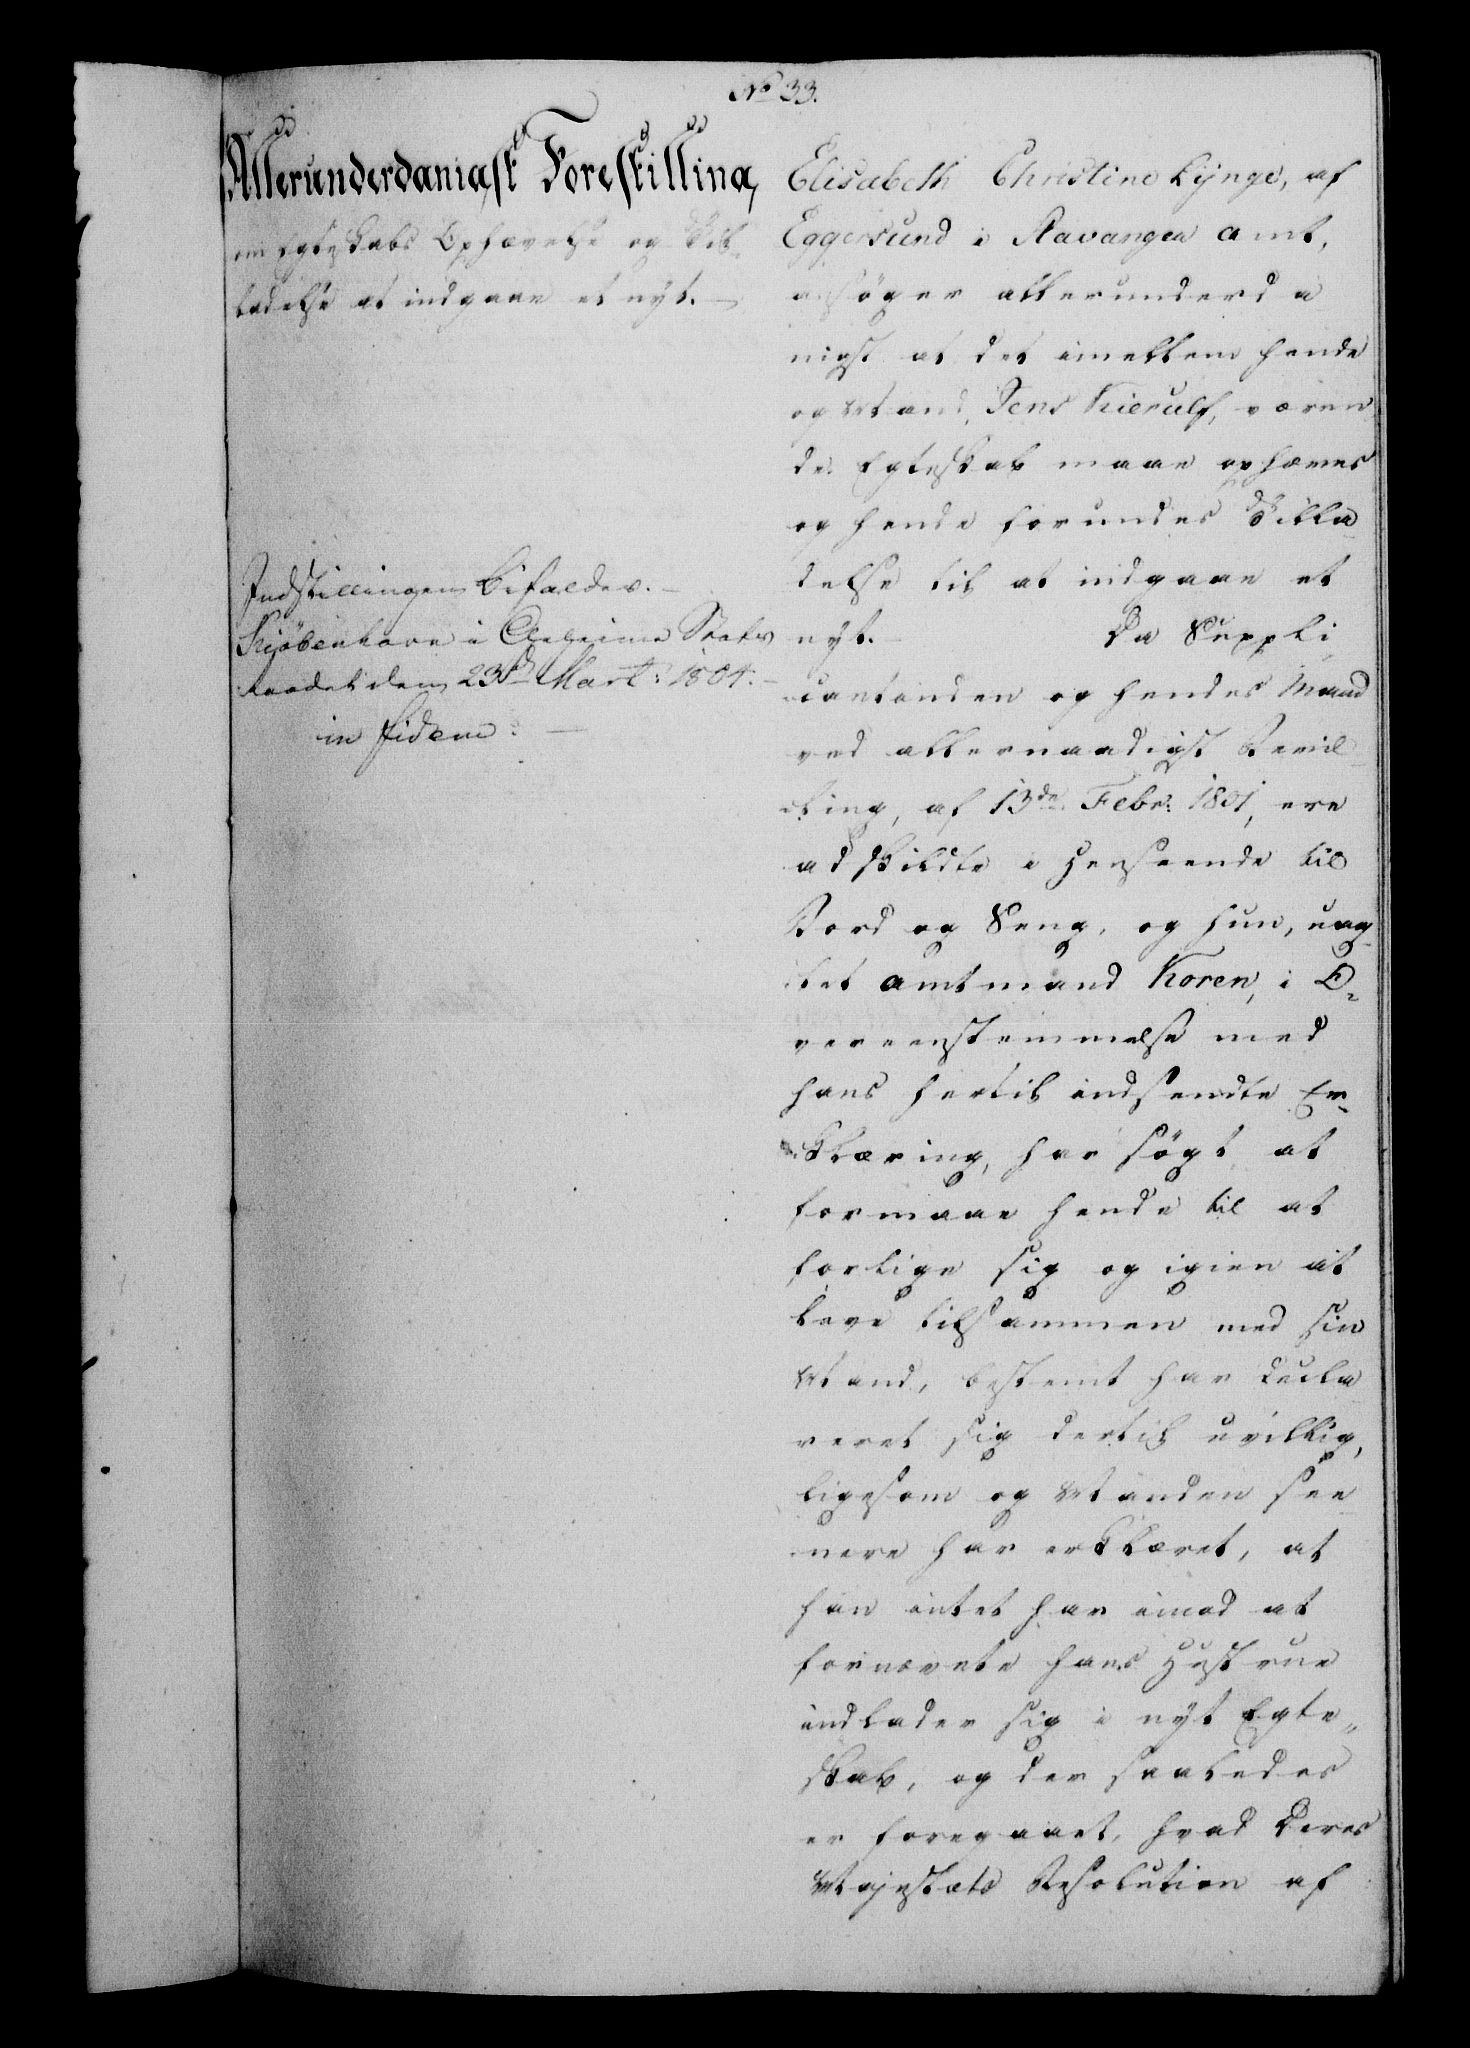 No 33.
Allerunderdanigst Forestilling,
om Egteskabs Ophævelse og Til„
ladelse at indgaae et nyt. —
Indstillingen bifaldes. —
Kjöbenhavn i Geheime Stats
Raadet den 23de Mart: 1804. —
in fidem: —
Elisabeth Christine Lynge, af
Eggersund i Stavanger Amt,
ansöger allerunderda
nigst at det imellem hende
og Mand, Jens Kierulf, væren
de Egteskab maae ophæves
og hende forundes Tilla
delse til at indgaae et
nyt. — Da Suppli
cantinden og hendes Mand
ved allernaadigst Bevil
ling, af 13de Febr: 1801, ere
adskildte i Henseende til
Bord og Seng, og hun, uag
tet Amtmand Koren, i O„
vereensstemmelse med
hans hertil indsendte Er„
klæring, har sögt at
formaae hende til at
forlige sig og igien at
leve tilsammen med sin
Mand, bestemt har decla
reret sig dertil uvillig,
ligesom og Manden see
nere har erklæret, at
han intet har imod at
fornævnte hans Hustrue
indlader sig i nyt Egte„
skab, og der saaledes
er foregaaet, hvad Deres
Majestæts Resolution af